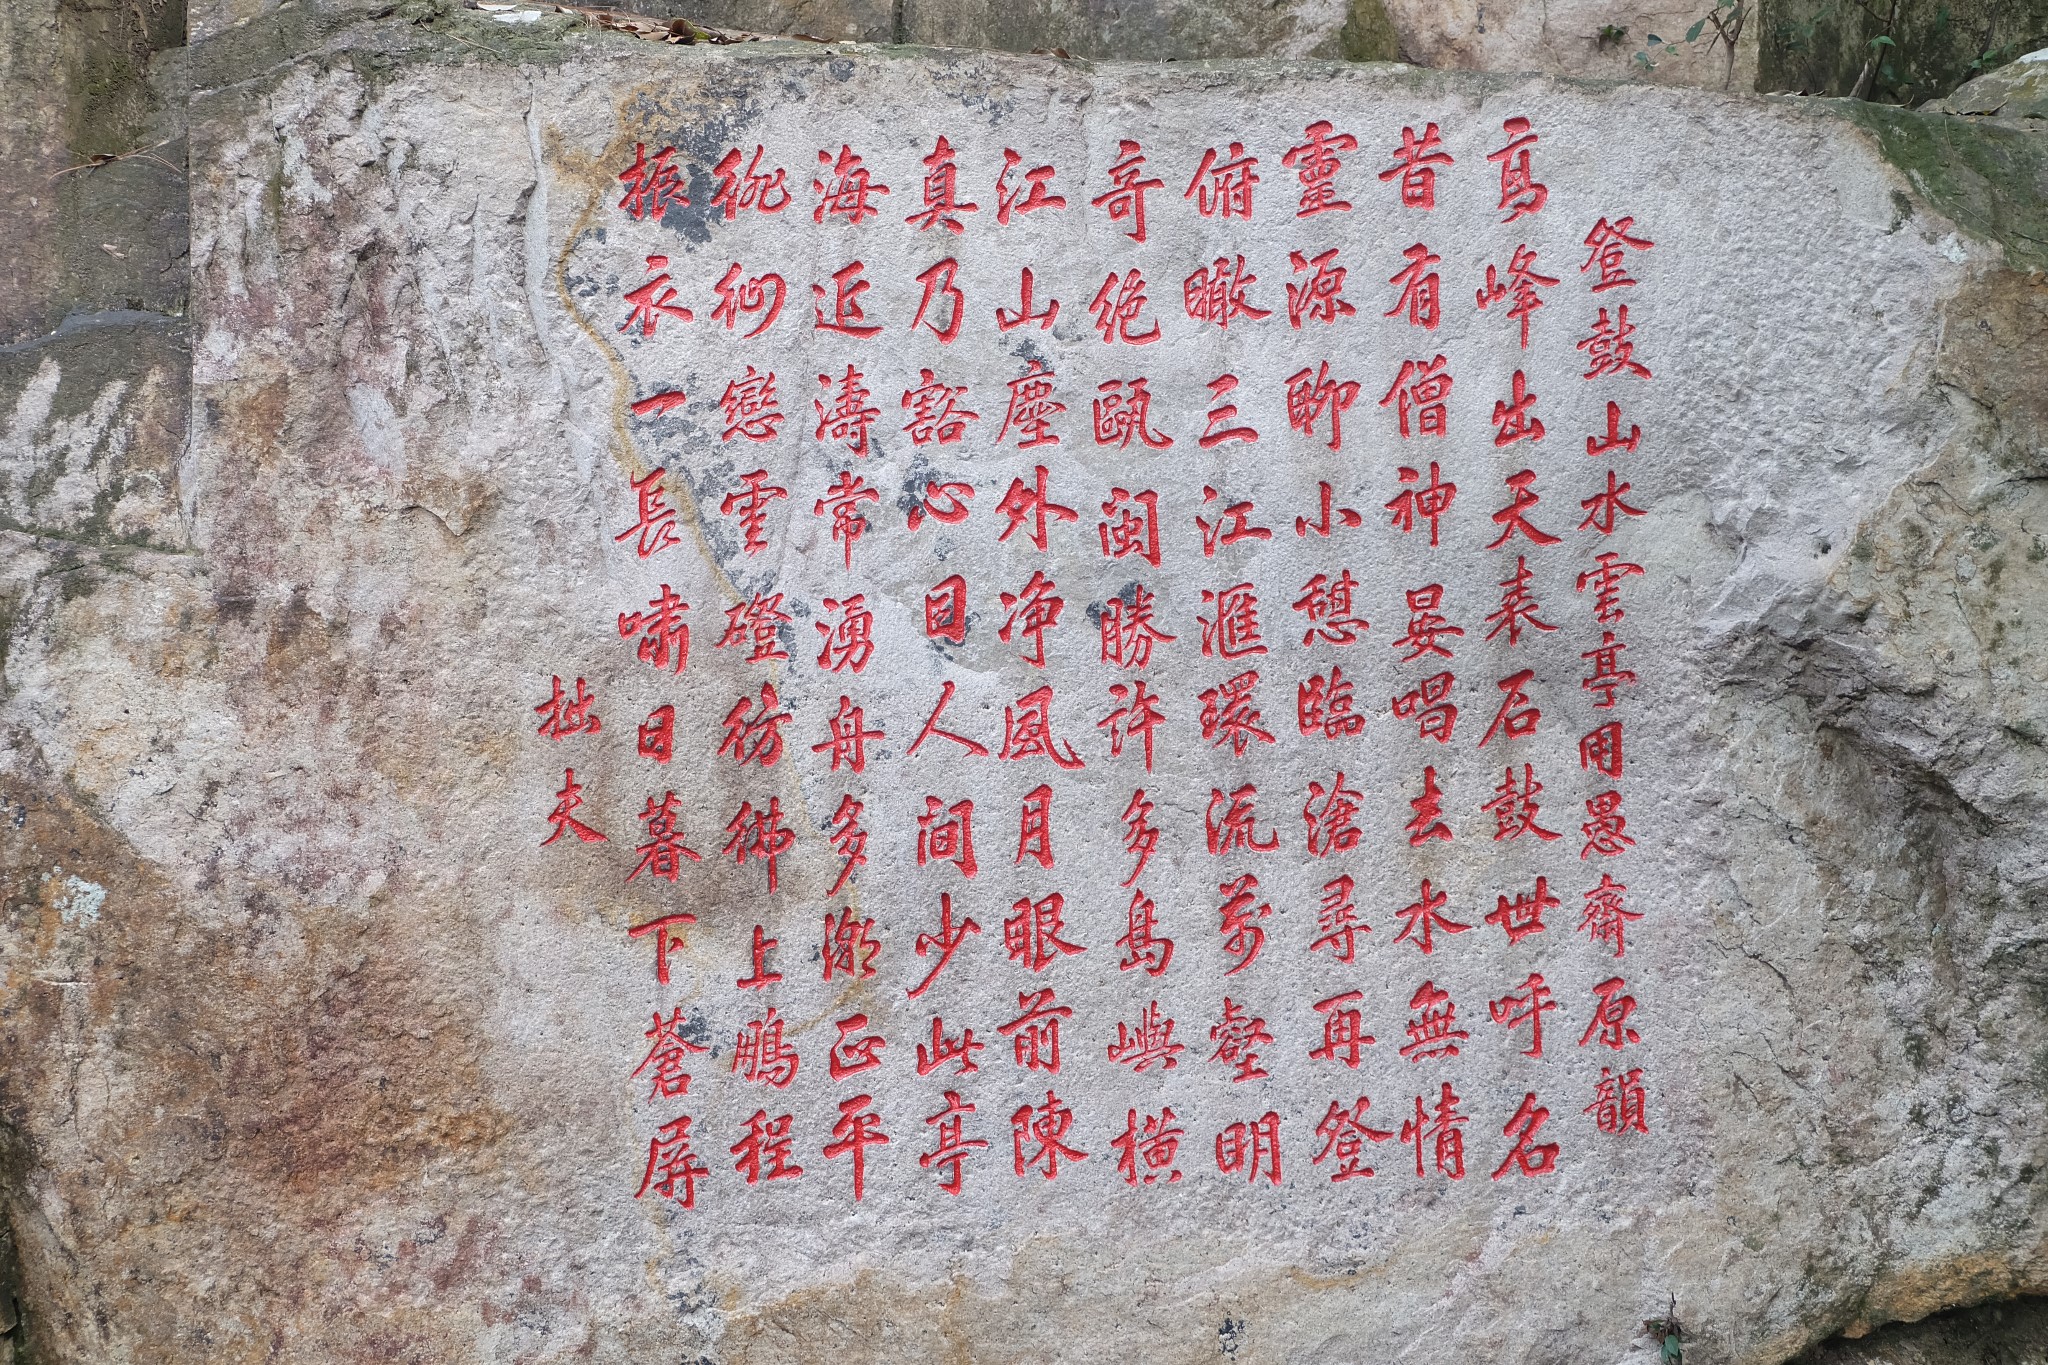 登鼓山水雲亭用愚齋原韻
高峰出天表石鼓世呼名
昔有僧神晏唱去水無情
靈源聊小憩臨滄尋再登
俯瞰三江滙環流萬壑明
奇絶甌閩勝許多島嶼横
江山塵外净風月眼前陳
真乃豁心目人間少此亭
海近濤常湧舟多潮正平
戀雲磴彷彿上鵬程
振衣一長嘯日暮下蒼屏
拙夫